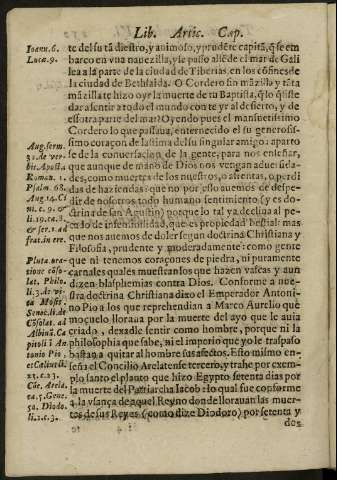 Lib. Artic. Cap.
Ioann. 6.
Luca. 9.
te del su tā diestro, y animoso, y prudēte capitā, q̄ se em
barco en vna nauezilla, y se passo allēde el mar de Gali
lea a la parte de la ciudad de Tiberias, en los cōfines de
la ciudad de Bethsaida. O Cordero sin māzilla y tāta
māzilla te hizo oyr la muerte de tu Baptista, q̄ lo q̄siste
dar a sentir a todo el mundo con te yr al desierto, y de
essotra parte del mar? Oyendo pues el mansuetissimo
Cordero lo que passaua, enternecido el su generosis-
simo coraçon de lastima del su singular amigo: aparto
se de la conuersacion de la gente, para nos enseñar,
que aunque de mano de Dios nos vengan aduersida-
des, como muertes de los nuestros, o afrentas, o perdi
das de haziendas: que no por esso auemos de despe-
dir de nosotros todo humano sentimiento (y es do-
ctrina de san Agustin) porque lo tal ya declina al pe-
cado de insensibilidad, que es propiedad bestial: mas
que nos auemos de doler segun doctrina Christiana y
Filosofia, prudente y moderadamente: como gente
que ni tenemos coraçones de piedra, ni puramente
carnales quales muestran los que hazen vascas y aun
dizen blasphemias contra Dios. Conforme a nue-
stra doctrina Christiana dixo el Emperador Antoni-
no Pio a los que reprehendian a Marco Aurelio que
moçuelo lloraua por la muerte del ayo que le auia
criado, dexadle sentir como hombre, porque ni la
philosophia que sabe, ni el imperio que yo le traspaso
bastan a quitar al hombre sus afectos. Esto mismo en-
seña el Concilio Arelatense tercero, y trahe por exem-
plo santo el planto que hizo Egypto setenta dias por
la muerte del Patriarcha Iacob: lo qual fue conforme
a la vsança de aquel Reyno donde llorauan las muer-
tes de sus Reyes (como dize Diodoro) por setenta y
dos
Aug. serm.
Roman. 1.
Psalm. 68.
fratr. in ere.
tione cōso-
lat. Philo.
tonio Pio,
23. c. 23.
li. 2. c. 3.